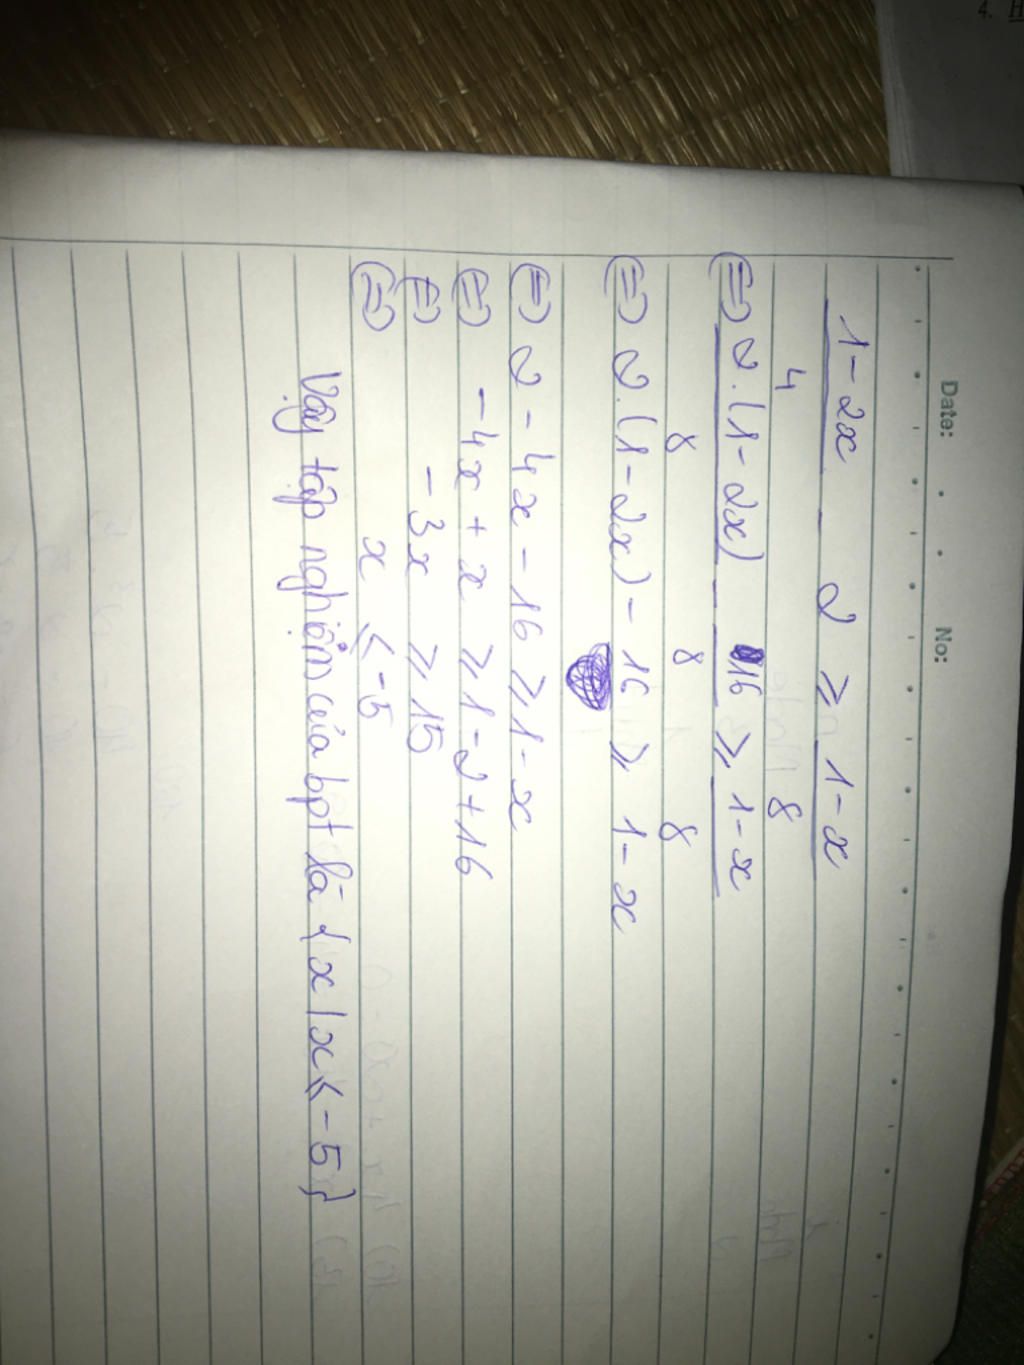 4. H
Date: No:
1-2x - 2 ≥ 1-x
4 8
⇔ 2.(1-2x) - 16 ≥ 1-x
8 8 8
⇔ 2.(1-2x) - 16 ≥ 1-x
⇔ 2 - 4x - 16 ≥ 1-x
⇔ -4x + x ≥ 1-2+16
⇔ -3x ≥ 15
⇔ x ≤ -5
Vậy tập nghiệm của bpt là {x | x ≤ -5}